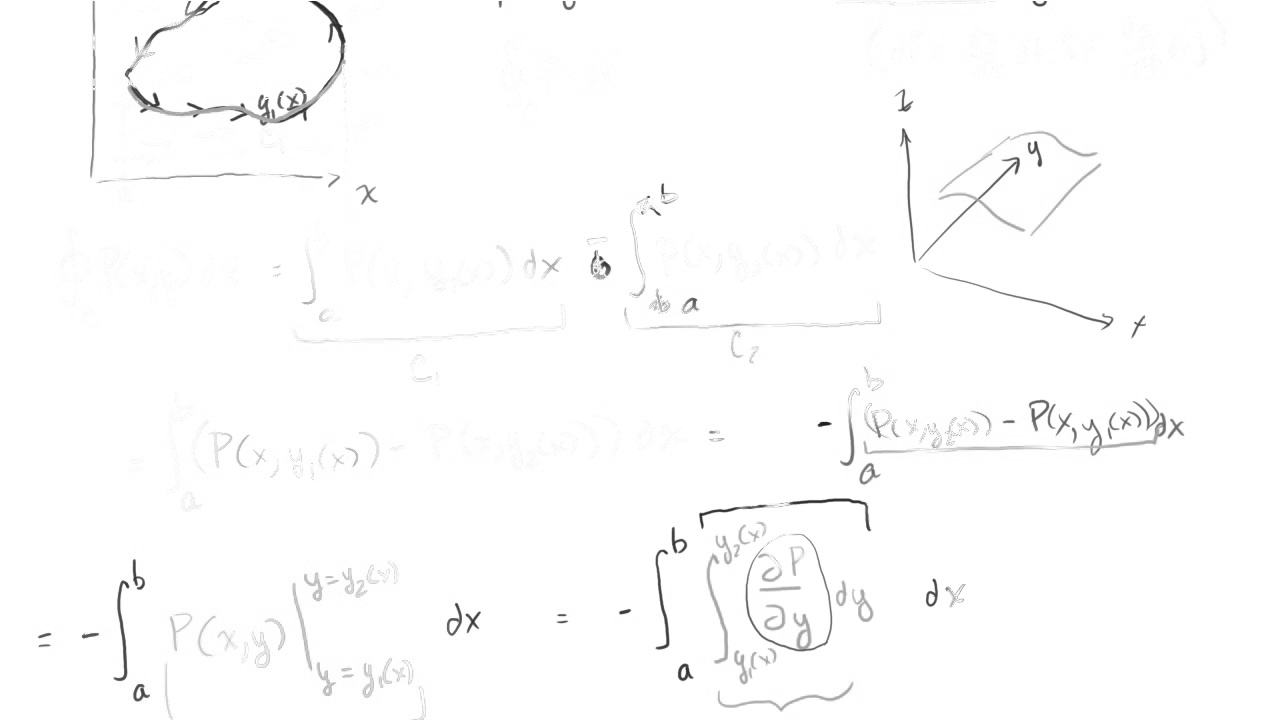 y₁(x)
x
z
y
x
∮ P(x,y) dx = ∫ₐᵇ P(x, y₁(x)) dx - ∫ₐᵇ P(x, y₂(x)) dx
C₁
C₂
= ∫ₐᵇ (P(x, y₁(x)) - P(x, y₂(x))) dx = - ∫ₐᵇ (P(x, y₂(x)) - P(x, y₁(x))) dx
= - ∫ₐᵇ P(x,y) | y = y₂(x) y = y₁(x) dx = - ∫ₐᵇ ∫ y₁(x) y₂(x) ∂P/∂y dy dx